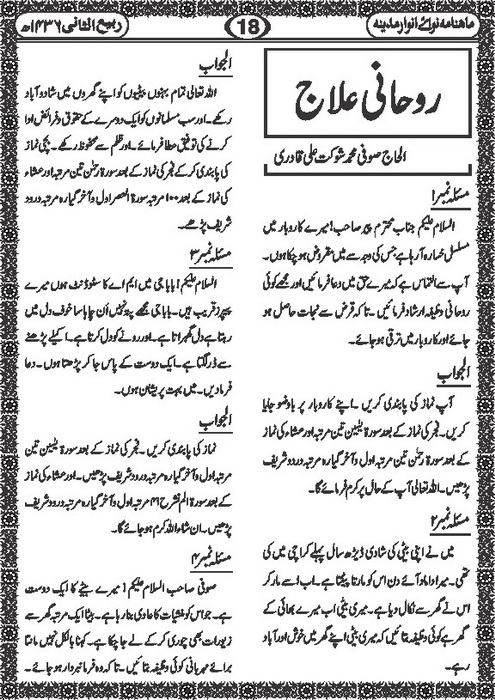 ماہنامہ نوائے انوار مدینہ
18
ربیع الثانی ۱۴۳۶ھ
روحانی علاج
الحاج صوفی محمد شوکت علی قادری
مسئلہ نمبر ۱
السلام علیکم جناب محترم پیر صاحب! میرے کاروبار میں
مسلسل خسارہ آرہا ہے جس کی وجہ سے میں مقروض ہو چکا ہوں۔
آپ سے التماس ہے کہ میرے حق میں دعا فرمائیں اور مجھے کوئی
روحانی وظیفہ ارشاد فرمائیں۔ تاکہ قرض سے نجات حاصل ہو
جائے اور کاروبار میں ترقی ہو جائے۔
الجواب
آپ نماز کی پابندی کریں۔ اپنے کاروبار پر باوضو جایا
کریں۔ فجر کی نماز کے بعد سورۃ یٰسین تین مرتبہ اور عشاء کی نماز
کے بعد سورۃ رحمٰن تین مرتبہ اول و آخر گیارہ مرتبہ درود شریف
پڑھیں۔ اللہ تعالیٰ آپ کے حال پر کرم فرمائے گا۔
مسئلہ نمبر ۲
میں نے اپنی بیٹی کی شادی ڈیڑھ سال پہلے کراچی میں کی
تھی۔ میرا داماد آئے دن اس کو مارتا پیٹتا ہے۔ اب اسے مار کر
اس نے گھر سے نکال دیا ہے۔ میری بیٹی اب میرے بھائی کے
گھر ہے کوئی وظیفہ بتائیں کہ میری بیٹی اپنے گھر میں خوش اور آباد
رہے۔
الجواب
اللہ تعالیٰ تمام بہنوں بیٹیوں کو اپنے گھروں میں شاد و آباد
رکھے۔ اور سب مسلمانوں کو ایک دوسرے کے حقوق و فرائض ادا
کرنے کی توفیق عطا فرمائے۔ اور ظلم سے محفوظ رکھے۔ بچی نماز
کی پابندی کر کے فجر کی نماز کے بعد سورۃ رحمٰن تین مرتبہ اور عشاء
کی نماز کے بعد ۱۰۰ مرتبہ سورۃ العصر اول و آخر گیارہ مرتبہ درود
شریف پڑھے۔
مسئلہ نمبر ۳
السلام علیکم! بابا جی میں ایم اے کا سٹوڈنٹ ہوں میرے
پیپرز قریب ہیں۔ بابا جی مجھے پتہ نہیں ان چاہا سا خوف دل میں
رہتا ہے دل گھبراتا ہے۔ اور رونے کو دل کرتا ہے۔ اکیلے پڑھنے
سے ڈر لگتا ہے۔ ایک دوست کے پاس جا کر پڑھتا ہوں۔ دعا
فرما دیں۔ میں بہت پریشان ہوں۔
الجواب
نماز کی پابندی کریں۔ فجر کی نماز کے بعد سورۃ یٰسین تین
مرتبہ اول و آخر گیارہ مرتبہ درود شریف پڑھیں۔ اور عشاء کی نماز
کے بعد سورۃ الم نشرح ۴۱ مرتبہ اول و آخر گیارہ مرتبہ درود شریف
پڑھیں۔ ان شاء اللہ کرم ہو جائے گا۔
مسئلہ نمبر ۴
صوفی صاحب السلام علیکم! میرے بیٹے کا ایک دوست
ہے۔ جو اس کو منشیات کا عادی بنا رہا ہے۔ بیٹا ایک مرتبہ گھر سے
زیورات بھی چوری کر کے لے جا چکا ہے۔ کہنا بالکل نہیں مانتا
برائے مہربانی کوئی وظیفہ بتائیں۔ تاکہ وہ فرمانبردار ہو جائے۔